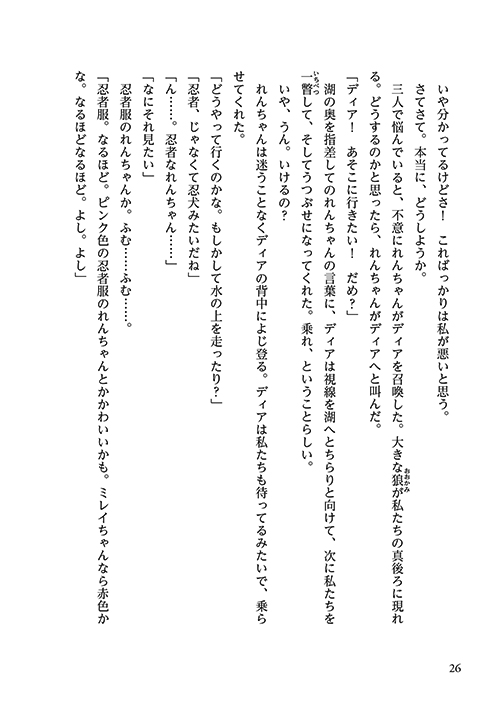 いや分かってるけどさ！　こればっかりは私が悪いと思う。
さてさて。本当に、どうしようか。
三人で悩んでいると、不意にれんちゃんがディアを召喚した。大きな狼が私たちの真後ろに現れ
る。どうするのかと思ったら、れんちゃんがディアへと叫んだ。
「ディア！　あそこに行きたい！　だめ？」
湖の奥を指差してのれんちゃんの言葉に、ディアは視線を湖へとちらりと向けて、次に私たちを
一瞥して、そしてうつぶせになってくれた。乗れ、ということらしい。
いや、うん。いけるの？
れんちゃんは迷うことなくディアの背中によじ登る。ディアは私たちも待ってるみたいで、乗ら
せてくれた。
「どうやって行くのかな。もしかして水の上を走ったり？」
「忍者、じゃなくて忍犬みたいだね」
「ん……。忍者なれんちゃん……」
「なにそれ見たい」
忍者服のれんちゃんか。ふむ……ふむ……。
「忍者服。なるほど。ピンク色の忍者服のれんちゃんとかかわいいかも。ミレイちゃんなら赤色か
な。なるほどなるほど。よし。よし」
おおかみ
いちべつ
26